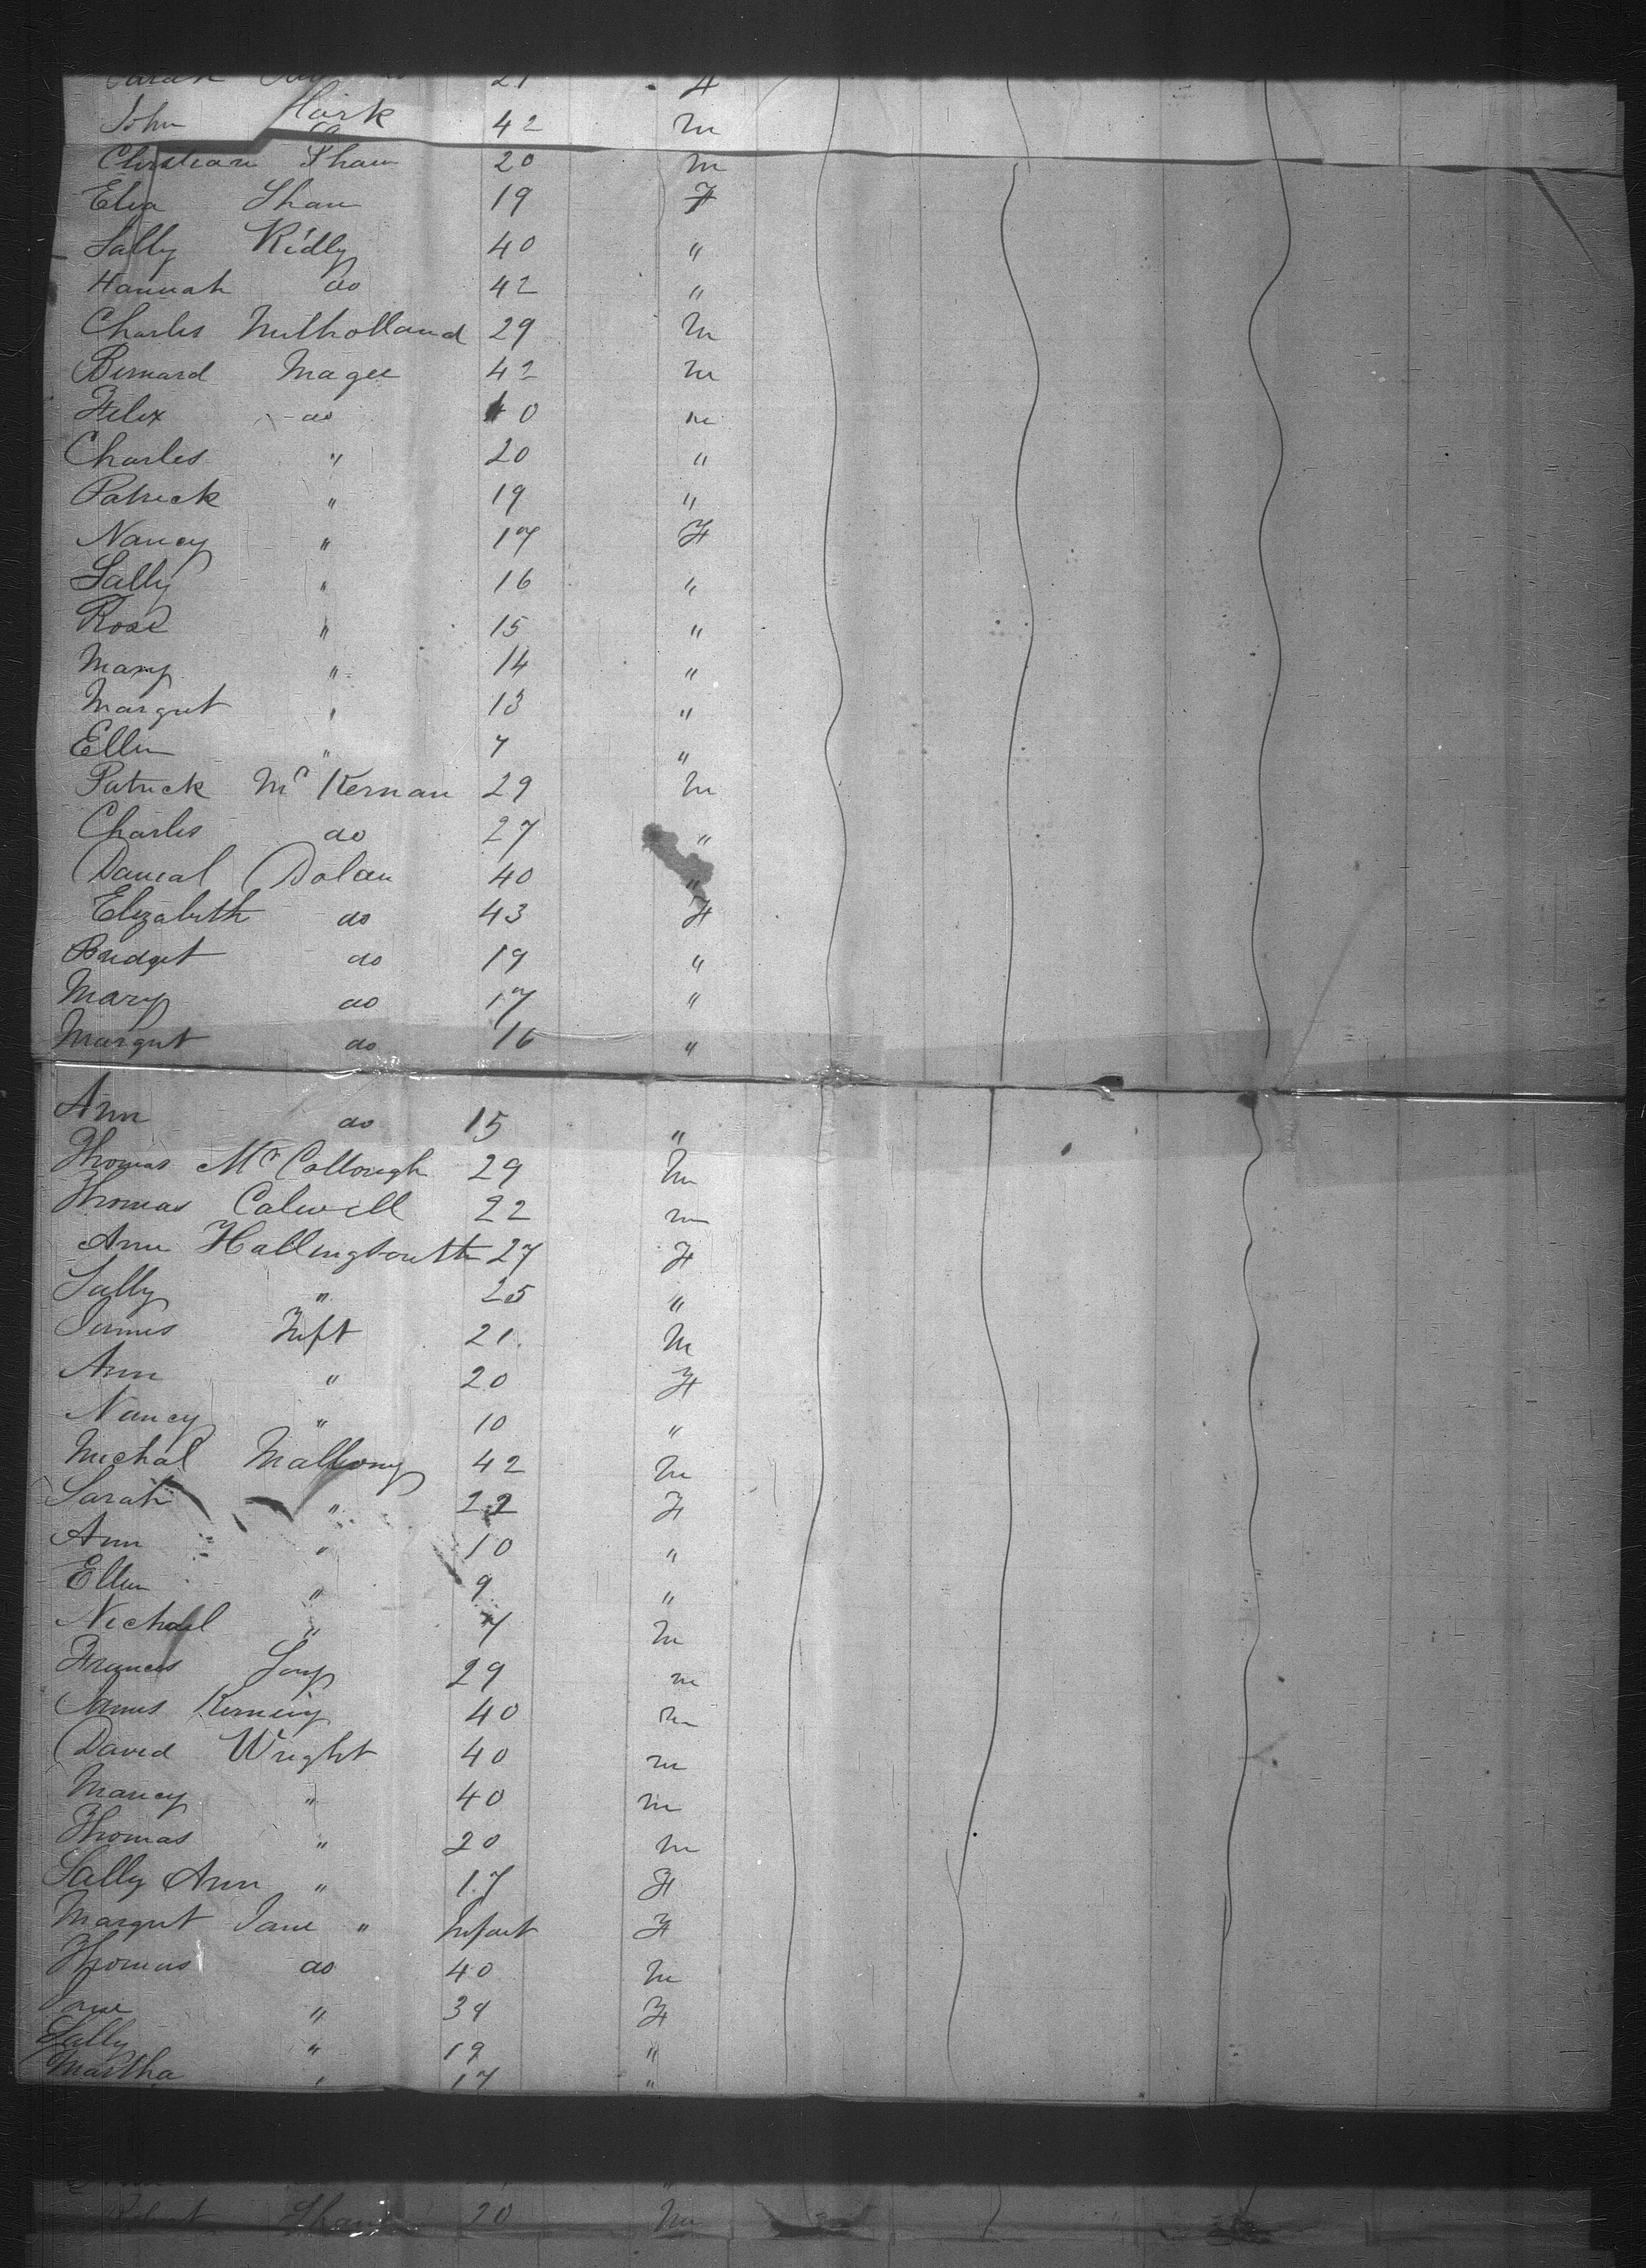 Sarah 21 F
John Hark 42 M
Christian Shaw 20 M
Eliza Shaw 19 F
Sally Ridly 40 "
Hannah do 42 "
Charles Mulholland 29 M
Bernard Magee 42 M
Felix do 40 M
Charles " 20 "
Patrick " 19 "
Nancy " 17 F
Sally " 16 "
Rose " 15 "
Mary " 14 "
Margret " 13 "
Ellen " 7 "
Patrick McKernan 29 M
Charles do 27 "
Danial Dolan 40 "
Elizabeth do 43 F
Bridget do 19 "
Mary do 17 "
Margret do 16 "
Ann do 15 "
Thomas McCollough 29 M
Thomas Calwell 22 M
Ann Hallingsouth 27 F
Sally " 25 "
James Tuft 21 M
Ann " 20 F
Nancy " 10 "
Michal Mallony 42 M
Sarah " 22 F
Ann " 10 "
Ellen " 9 "
Nichael " 7 M
Frances 29 M
James 40 M
David Wright 40 M
Mancy " 40 M
Thomas " 20 M
Sally Ann " 17 F
Margret Jane " Infant F
Thomas do 40 M
Jane " 39 F
Sally " 19 "
Martha " 17 "
Robert Shaw 20 M